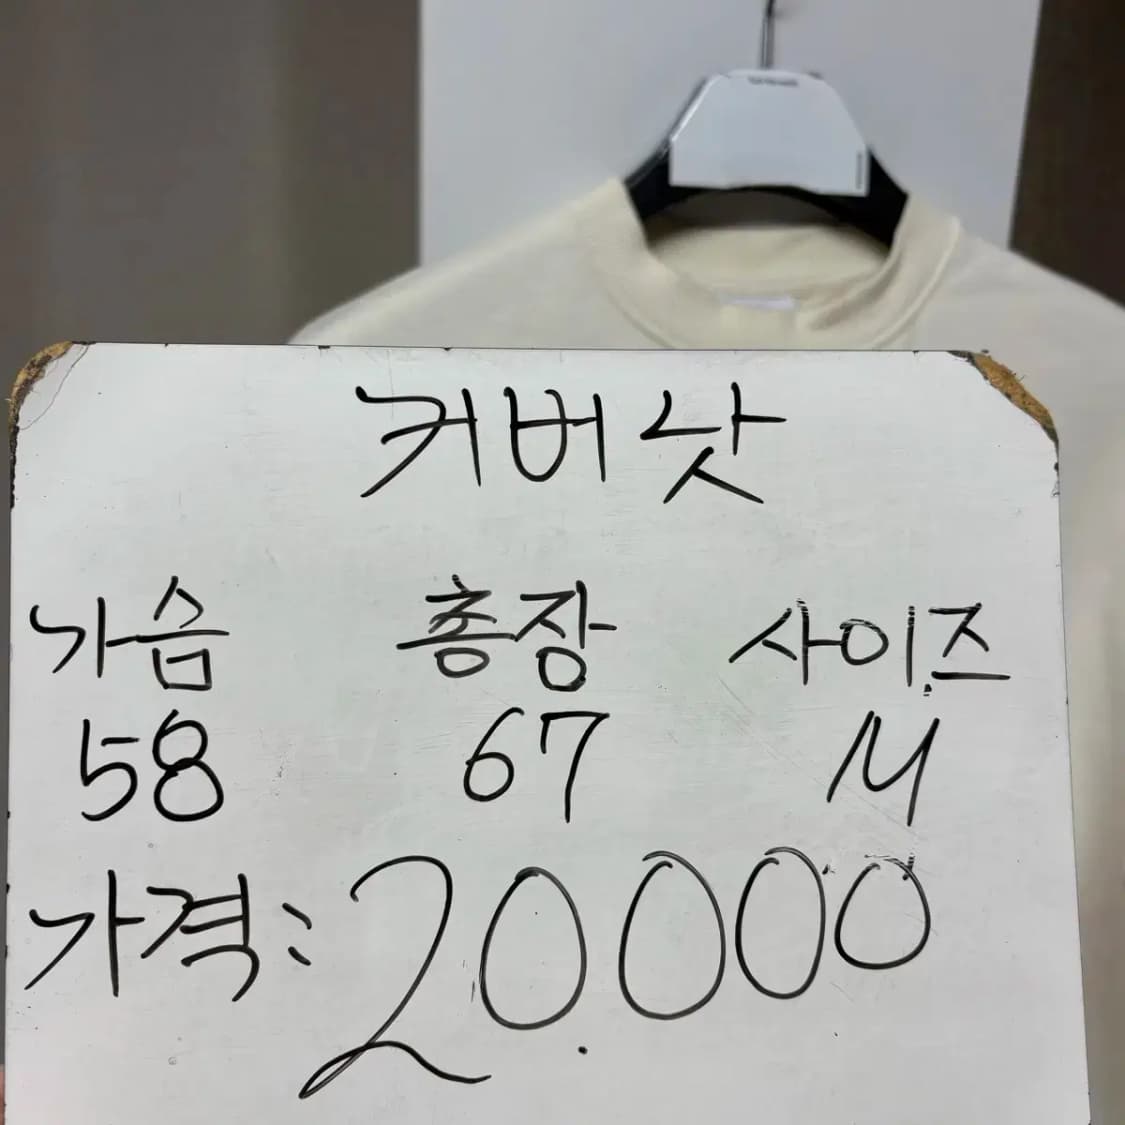 커버낫
가슴 총장 사이즈
58 67 M
가격: 20.000